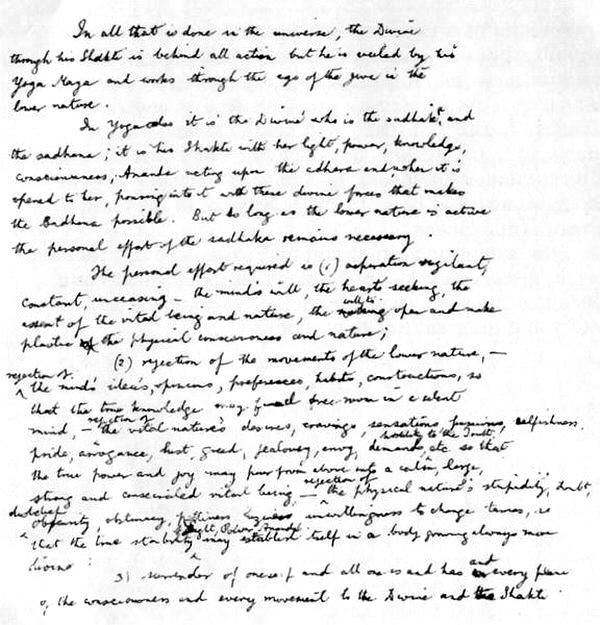 In all that is done in the universe, the Divine
through his Shakti is behind all action but he is veiled by his
Yoga Maya and works through the ego of the Jiva in the
lower nature.
In Yoga also it is the Divine who is the sadhaka and
the sadhana; it is his Shakti with her light, power, knowledge,
consciousness, Ananda acting upon the adhara and when it is
opened to her, pouring into it with these divine forces that makes
the Sadhana possible. But so long as the lower nature is active
the personal effort of the sadhaka remains necessary.
The personal effort required is (1) aspiration vigilant,
constant, unceasing – the mind's will, the heart's seeking, the
assent of the vital being and nature, the will to open and make
plastic the physical consciousness and nature;
(2) rejection of the movements of the lower nature, –
rejection of
the mind's ideas, opinions, preferences, habits, constructions, so
that the true knowledge may find free room in a silent
mind, – rejection of the vital nature's desires, cravings, sensations, passions, selfishness,
pride, arrogance, lust, greed, jealousy, envy, hostility to the Truth,
demands etc so that
the true power and joy may pour from above into a calm, large,
strong and consecrated vital being, – rejection of the physical nature's stupidity, doubt,
disbelief
obscurity, obstinacy, pettiness, laziness unwillingness to change tamas, so
that the true stability of Light, Power, Ananda may establish itself in a body growing always more
divine
3) surrender of oneself and all one is and has and every plane
of the consciousness and every movement to the Divine and the Shakti.